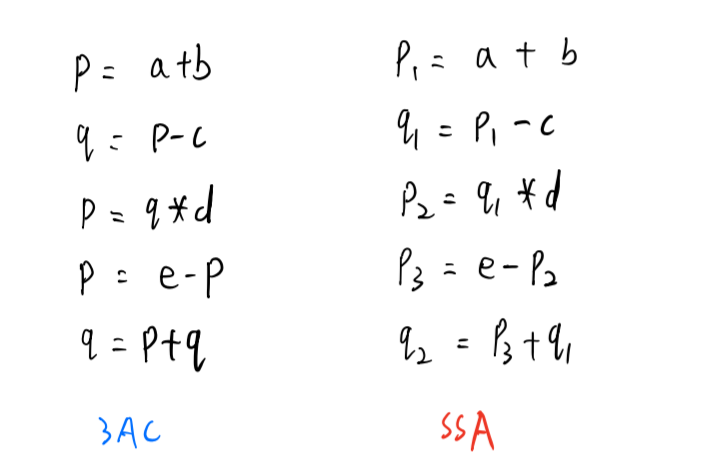 p = a+b
q = p-c
p = q*d
p = e-p
q = p+q
3AC
p₁ = a + b
q₁ = p₁ - c
p₂ = q₁ * d
p₃ = e - p₂
q₂ = p₃ + q₁
SSA